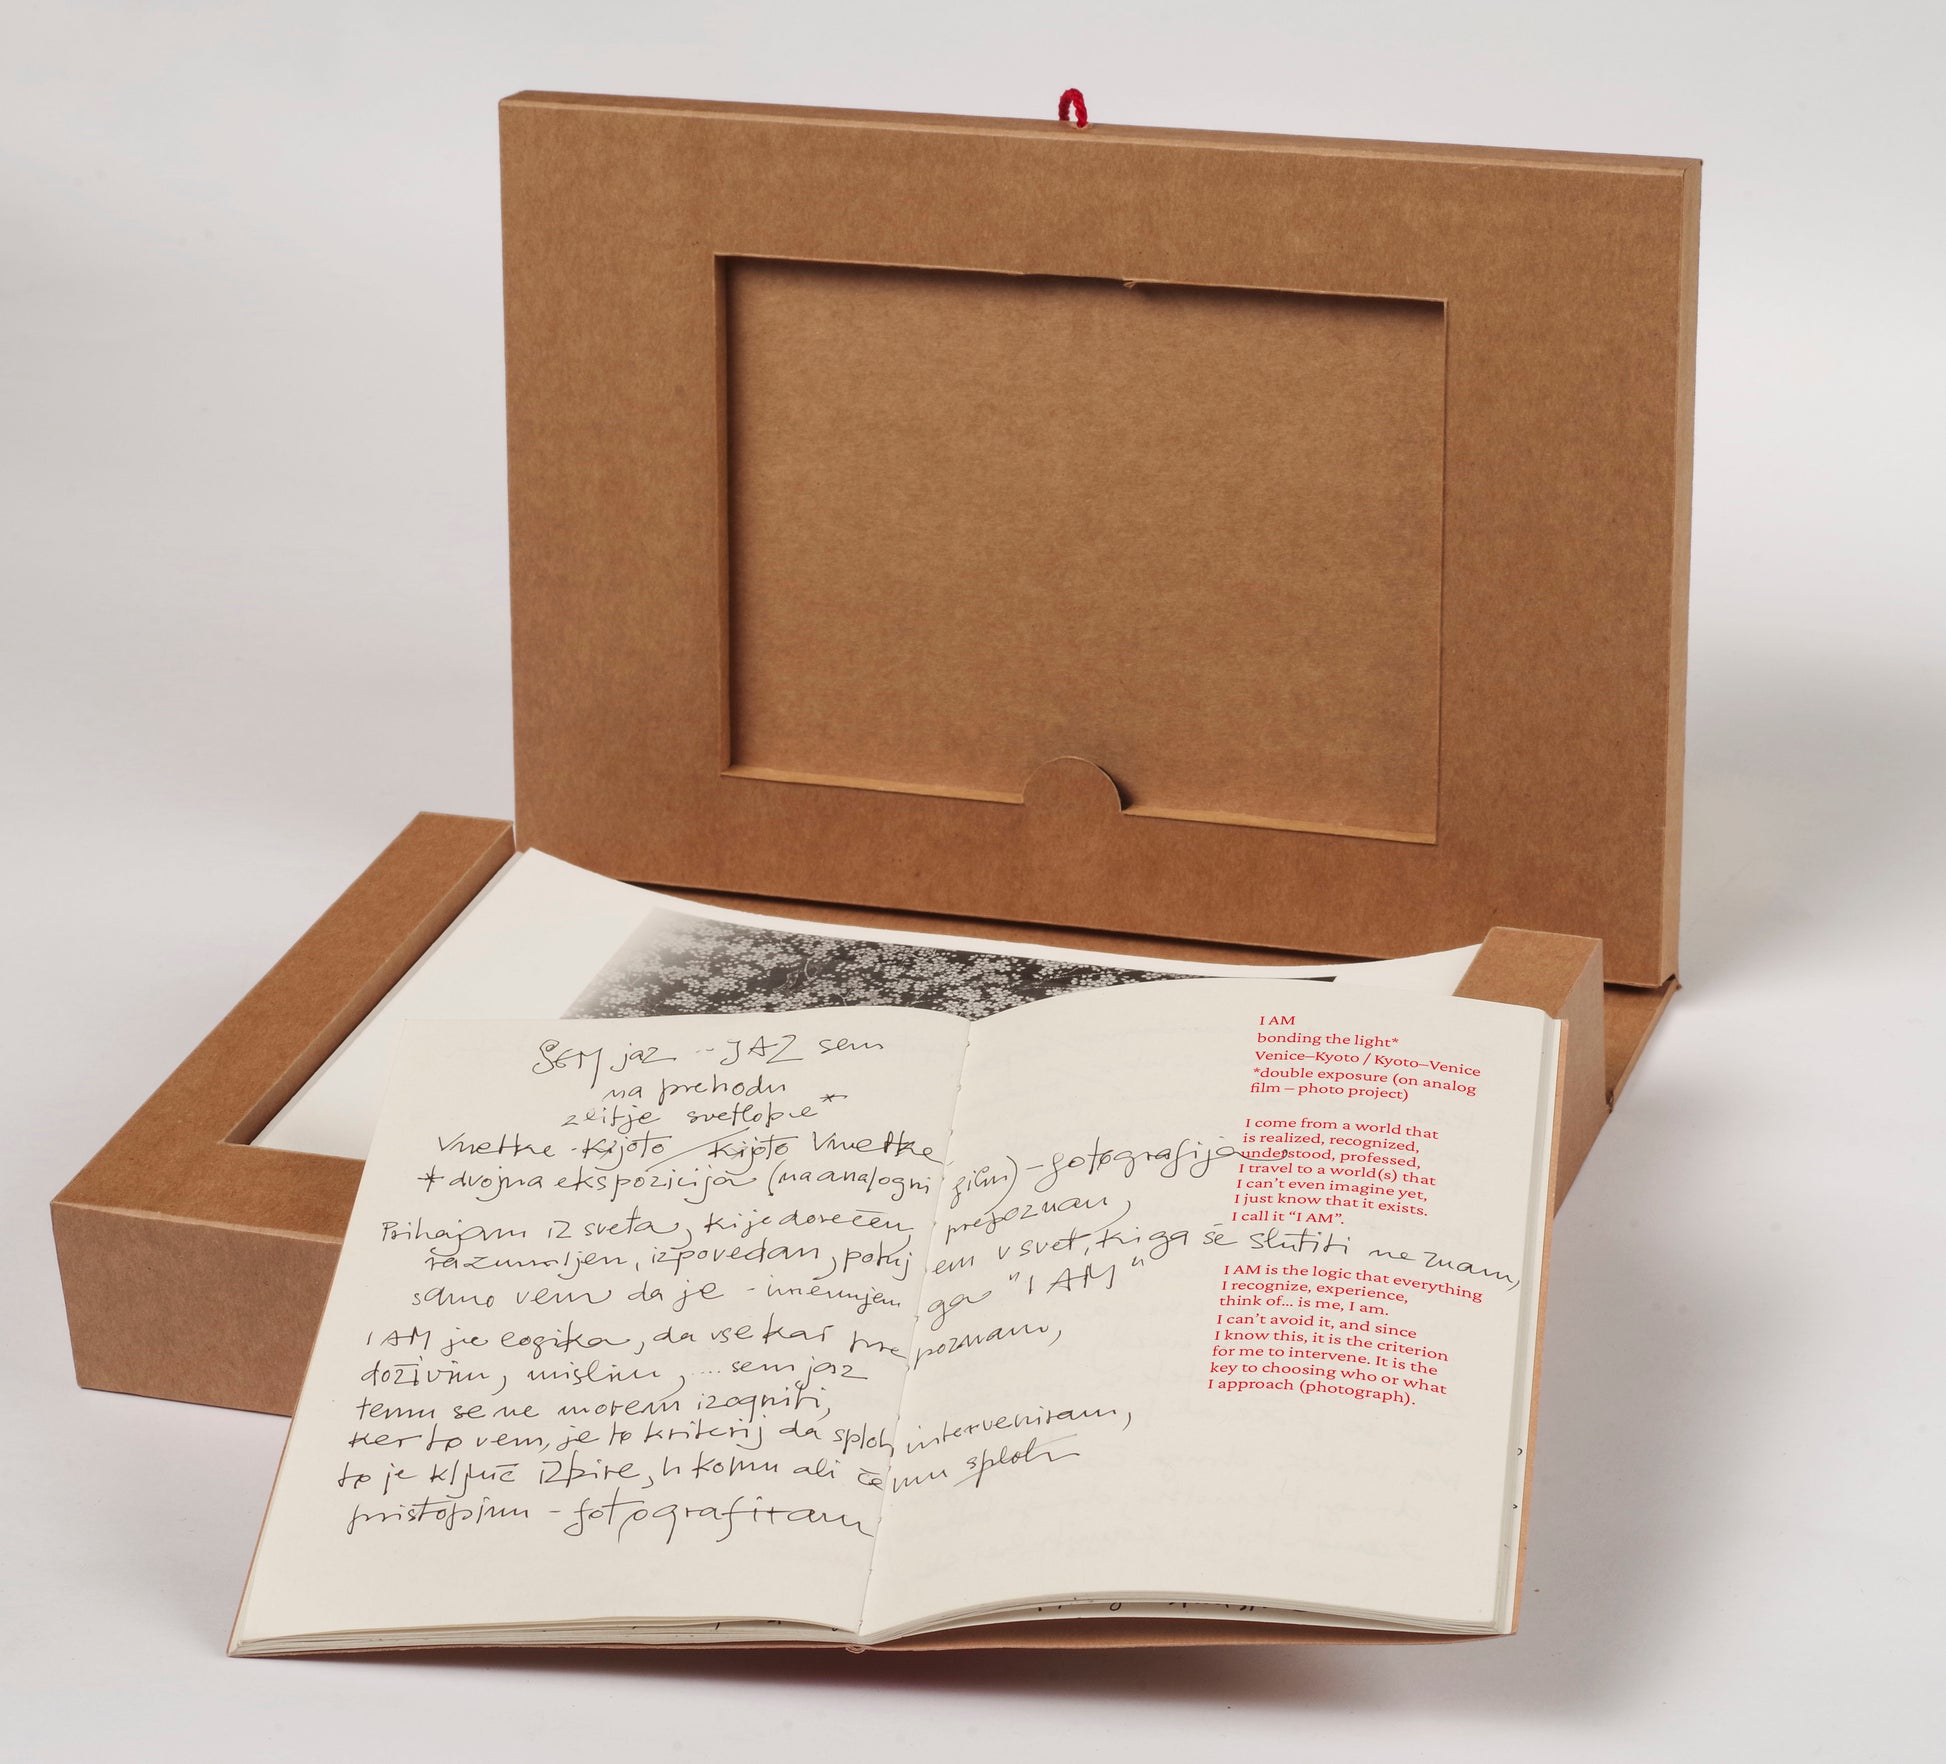 SEM jaz -- JAZ sem
na prehodu
zlitje svetlobe*
Vnetke - Kijoto / Kijoto Vnetke
*dvojna ekspozicija (na analogni film) - fotografija
Prihajam iz sveta, ki je dorečen, prepoznan,
razumljen, izpovedan, potujem v svet, ki ga še slutiti ne znam,
samo vem da je - imenujem ga "I AM"
I AM je logika, da vse kar prepoznam,
doživim, mislim, .... sem jaz
temu se ne morem izogniti,
ker to vem, je to kriterij da sploh interveniram,
to je ključ izbire, h komu ali čemu sploh
pristopim - fotografiram
I AM
bonding the light*
Venice–Kyoto / Kyoto–Venice
*double exposure (on analog
film – photo project)
I come from a world that
is realized, recognized,
understood, professed,
I travel to a world(s) that
I can't even imagine yet,
I just know that it exists.
I call it “I AM”.
I AM is the logic that everything
I recognize, experience,
think of... is me, I am.
I can't avoid it, and since
I know this, it is the criterion
for me to intervene. It is the
key to choosing who or what
I approach (photograph).